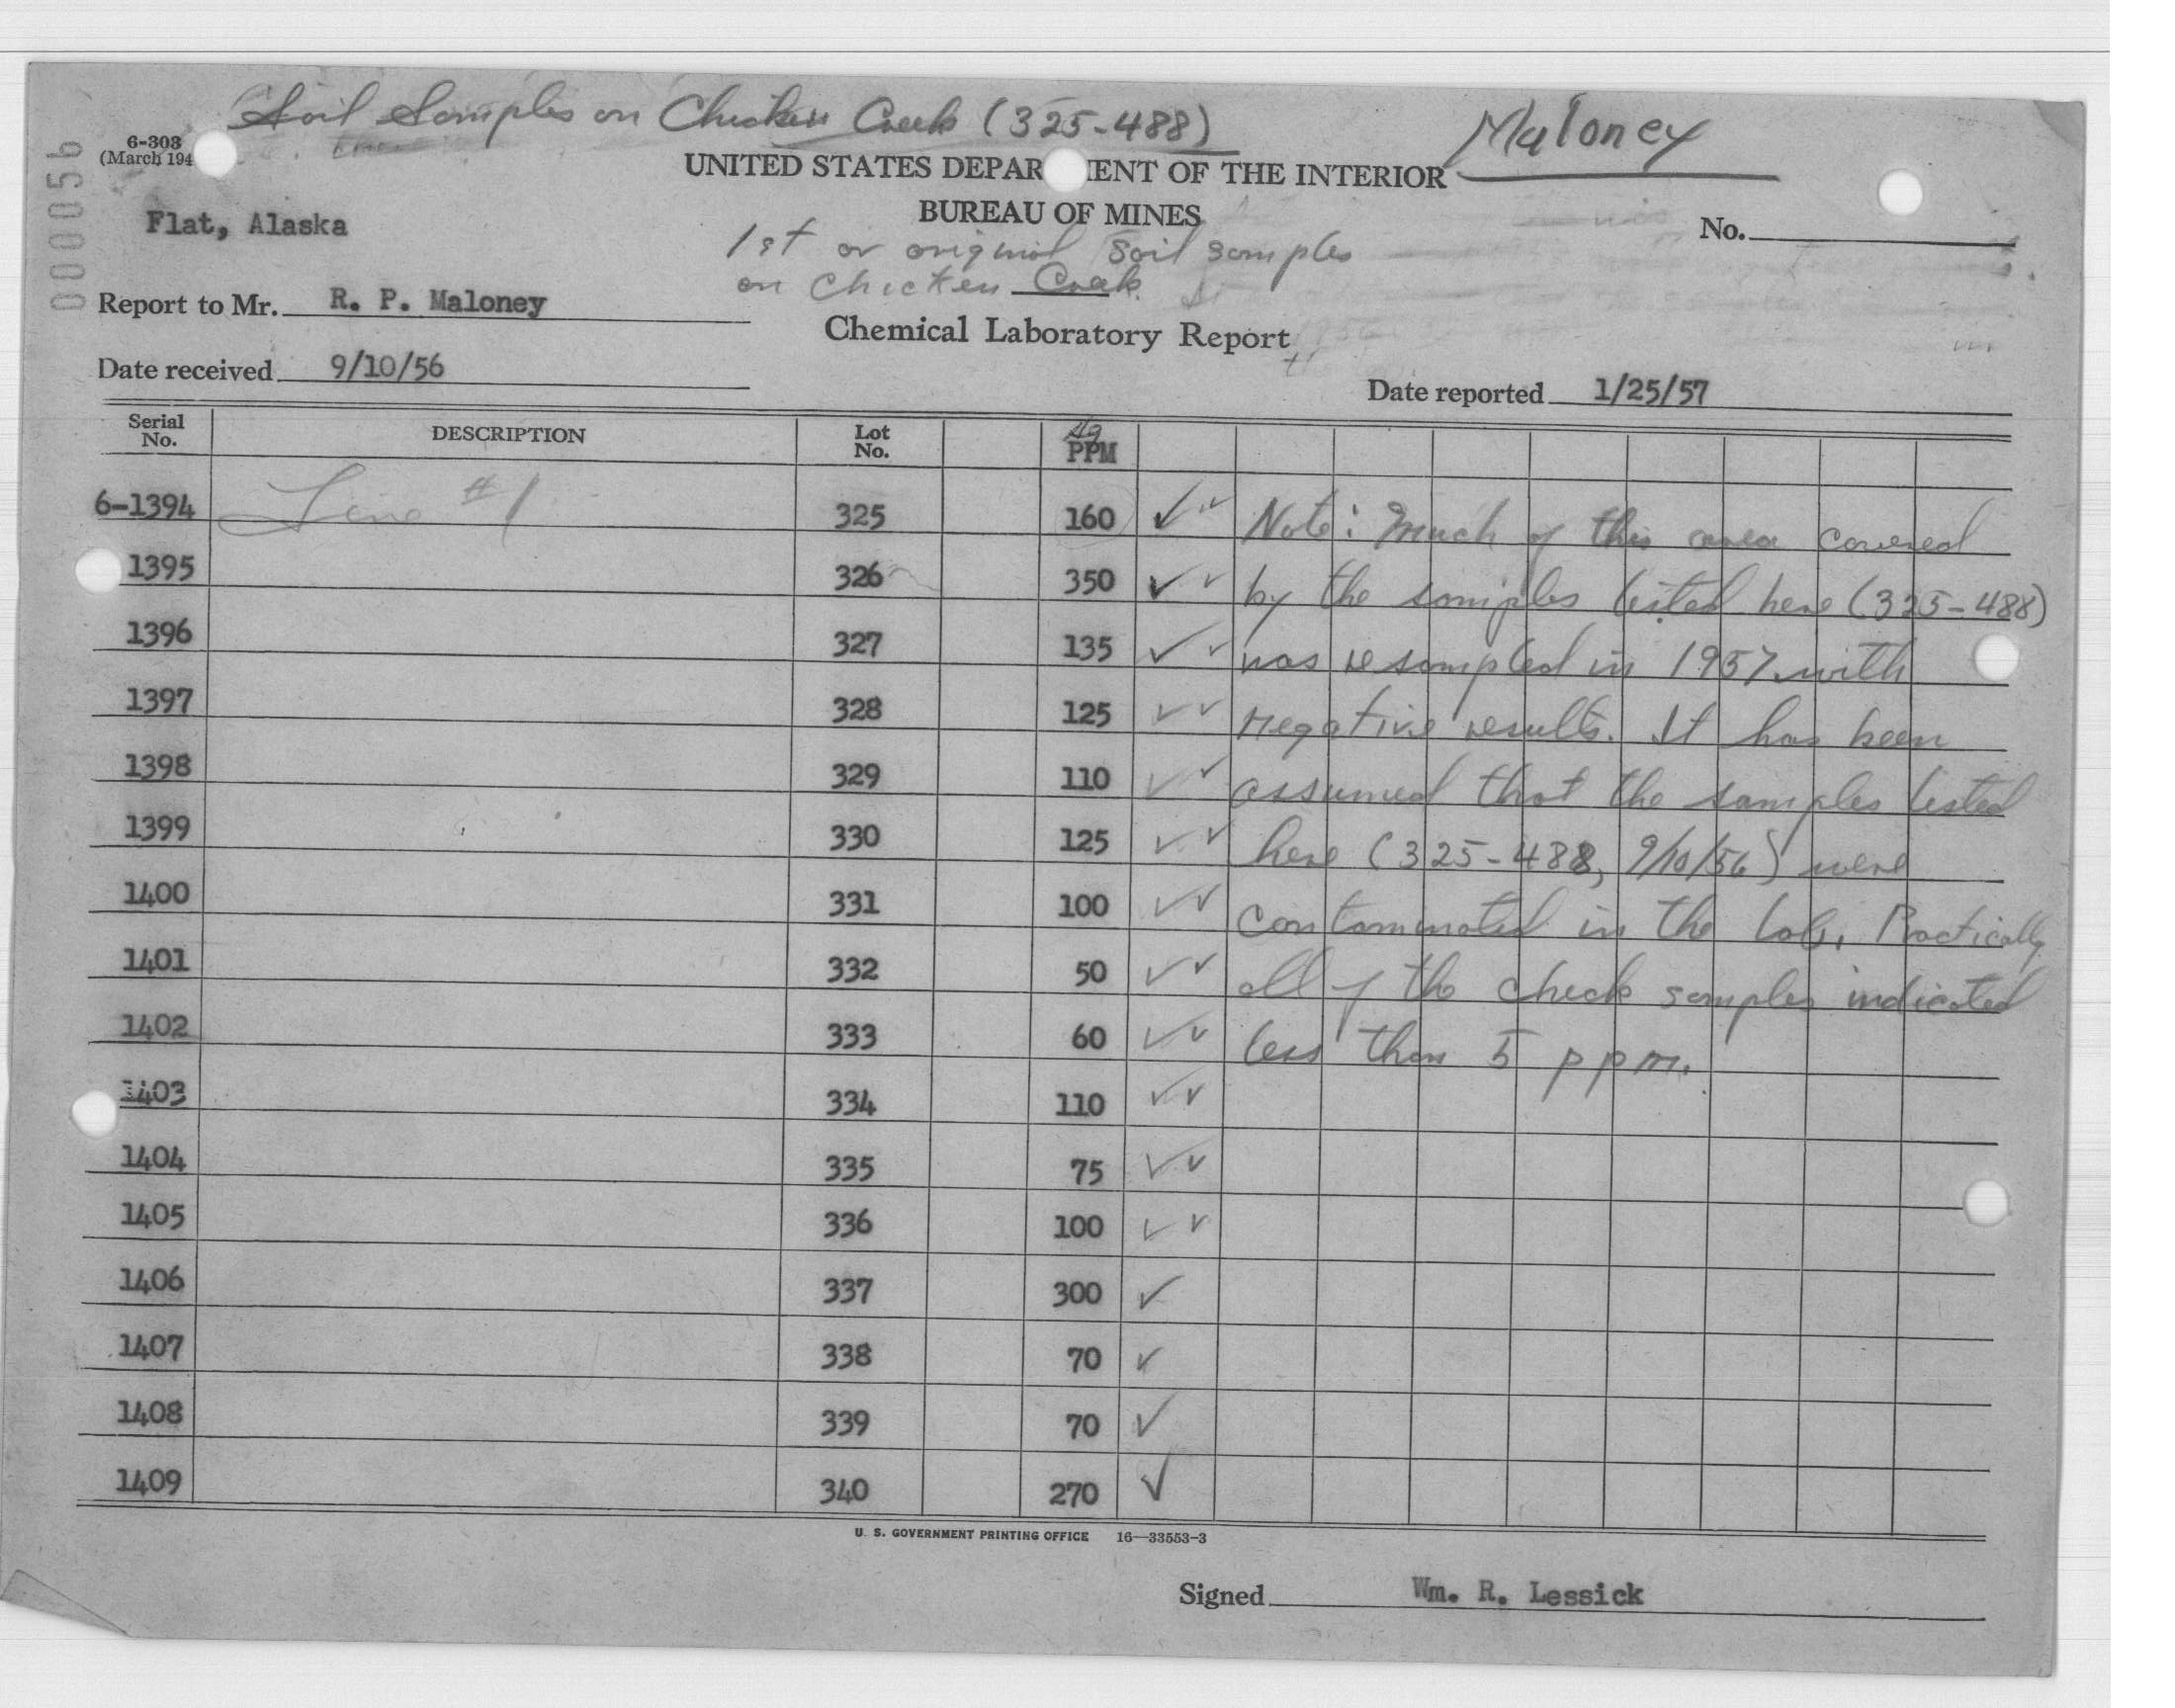 Soil Samples on Chicken Creek (325-488)
Maloney
6-303
(March 194
UNITED STATES DEPAR ENT OF THE INTERIOR
BUREAU OF MINES
000056
Flat, Alaska
No.
1st or original soil samples
on Chicken Creek
Report to Mr. R. P. Maloney
Chemical Laboratory Report
Date received 9/10/56
Date reported 1/25/57
Serial No. DESCRIPTION Lot No. PPM
6-1394 Line #1 325 160 ✓✓ Note: Much of this area covered
1395 326 350 ✓✓ by the samples listed here (325-488)
1396 327 135 ✓✓ was resampled in 1957 with
1397 328 125 ✓✓ negative results. It has been
1398 329 110 ✓✓ assumed that the samples listed
1399 330 125 ✓✓ here (325-488, 9/10/56) were
1400 331 100 ✓✓ contaminated in the lab. Practically
1401 332 50 ✓✓ all of the check samples indicated
1402 333 60 ✓✓ less than 5 ppm.
1403 334 110 ✓✓
1404 335 75 ✓✓
1405 336 100 ✓✓
1406 337 300 ✓
1407 338 70 ✓
1408 339 70 ✓
1409 340 270 ✓
U. S. GOVERNMENT PRINTING OFFICE 16—33553-3
Signed Wm. R. Lessick